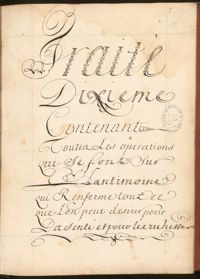 Traité
Dixieme
Contenant
Toutes Les operations
qui Se font Sur
L'antimoine
qui Renferme tout ce
que L'on peut desirer pour
La Santé et pour les richesses